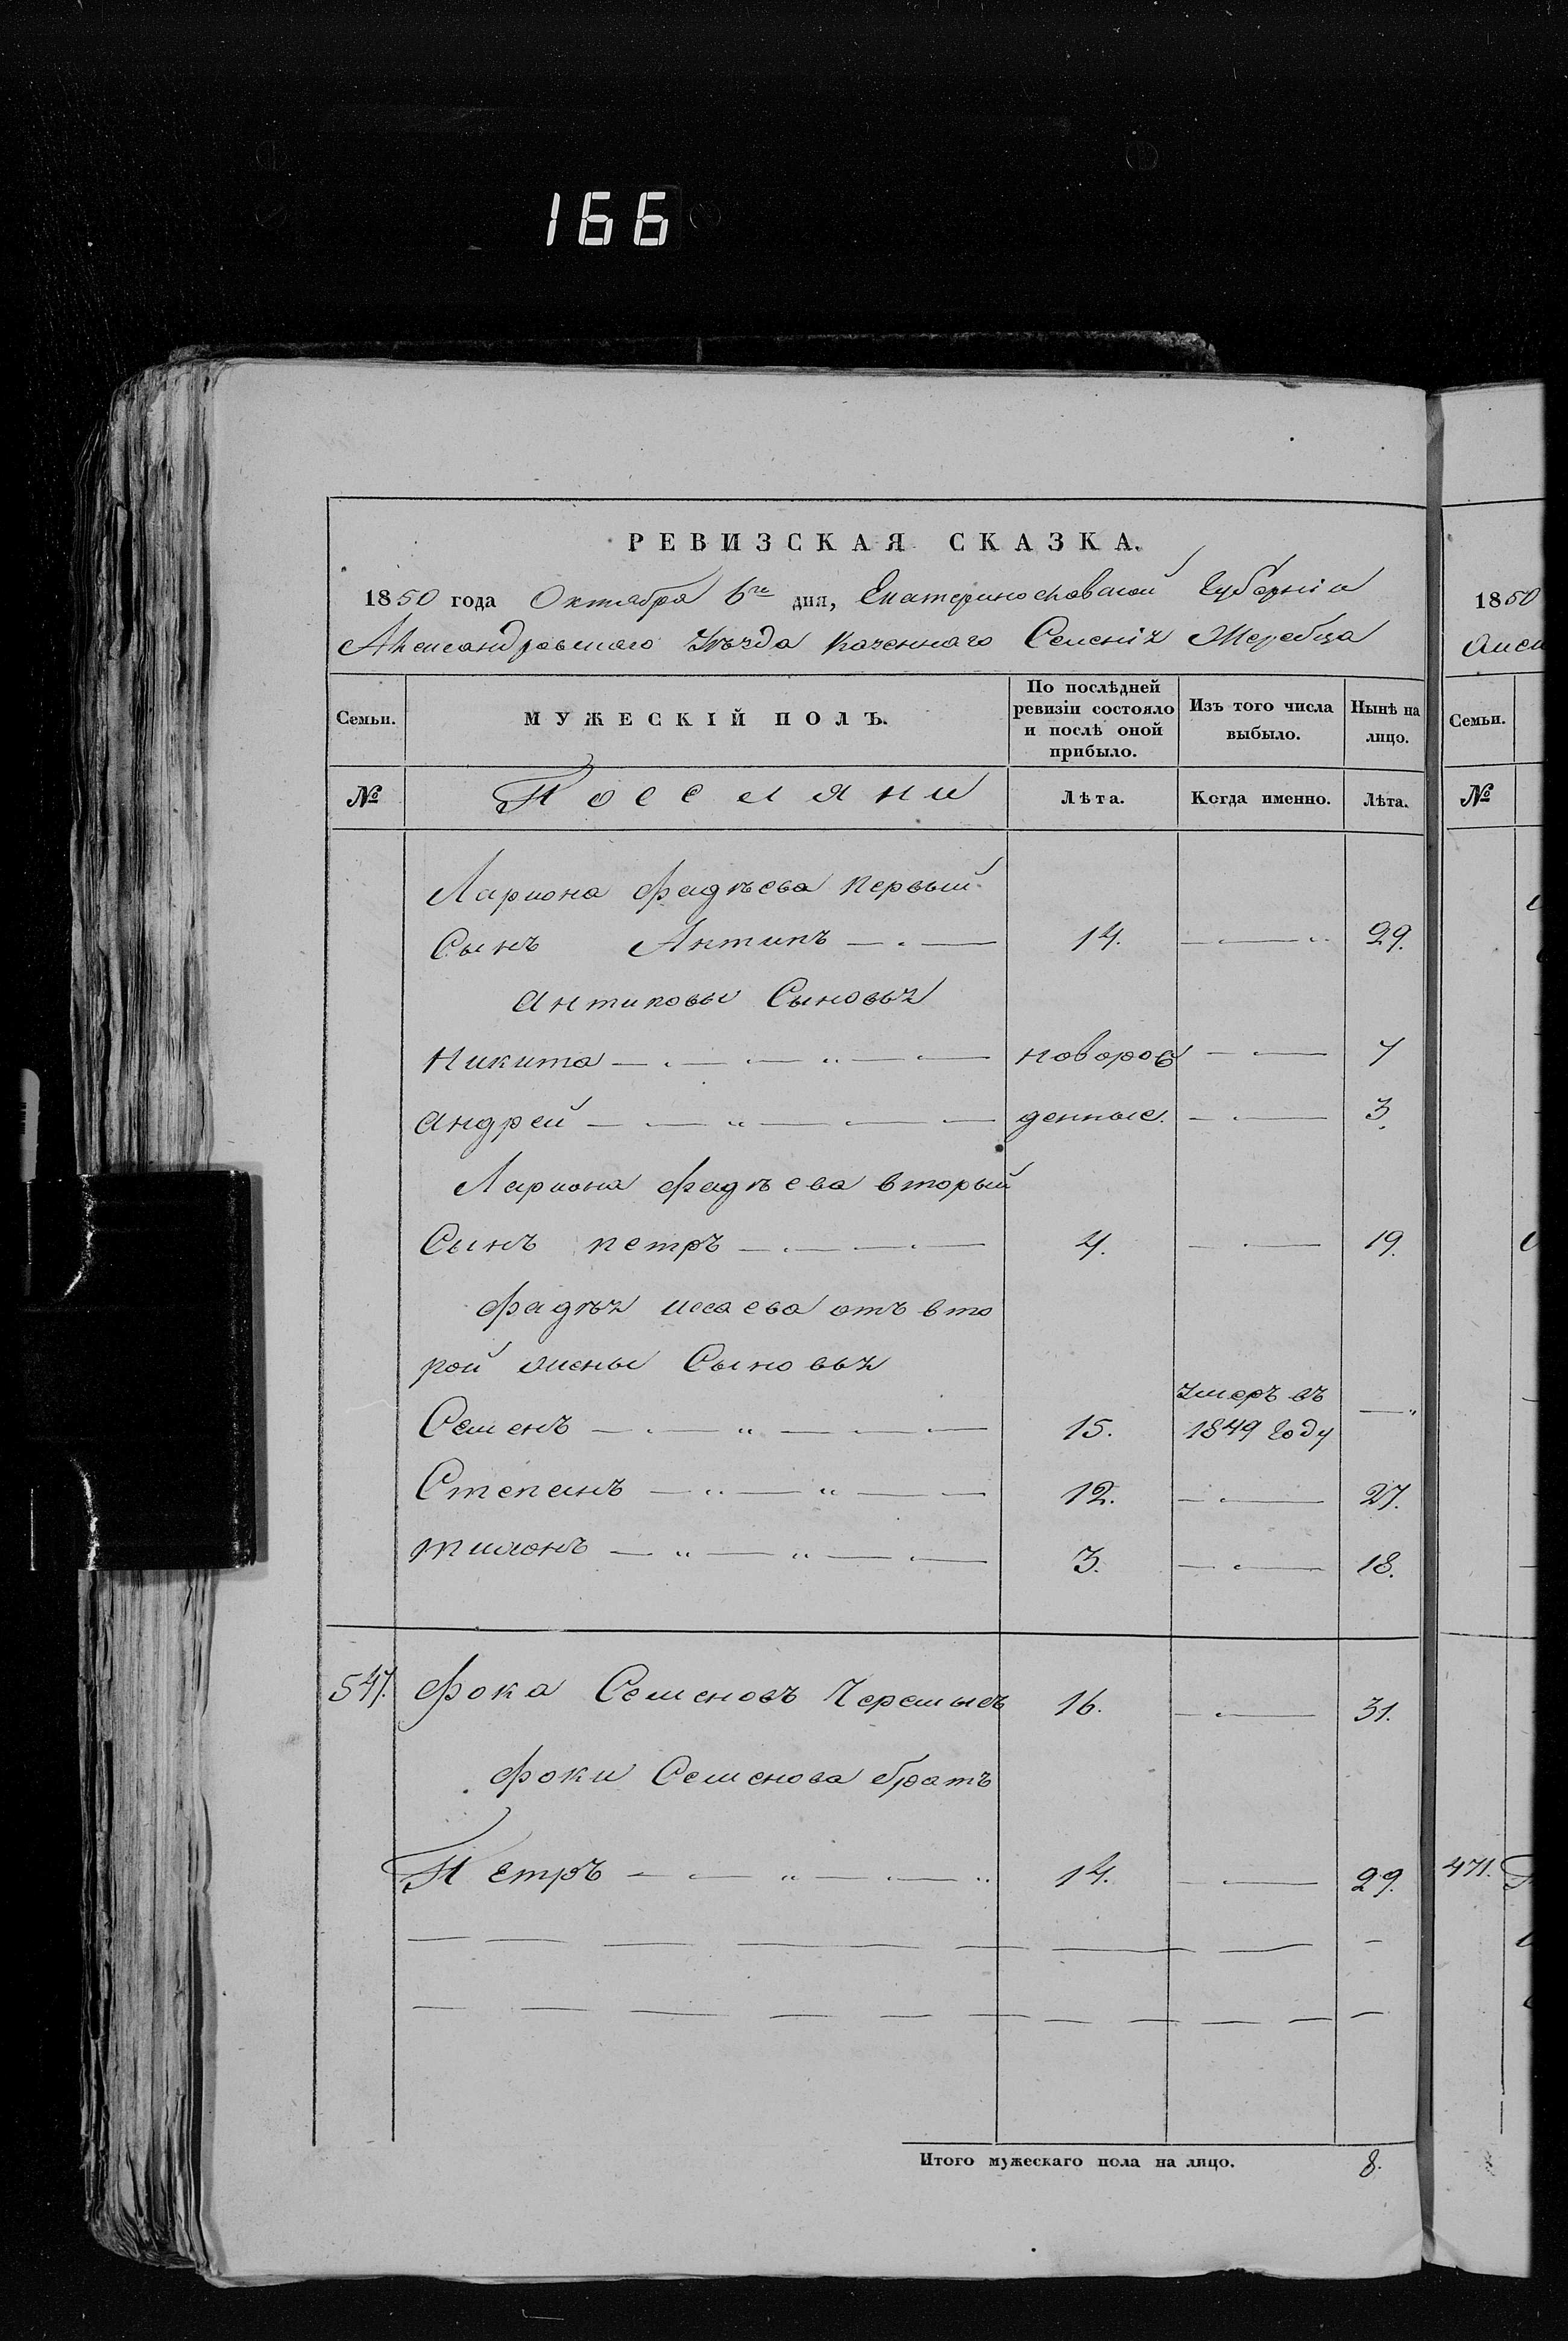 166
РЕВИЗСКАЯ СКАЗКА.
1850 года Октября 6го дня, Екатеринославской Губерніи
Александровскаго Уѣзда Казеннаго Селенія Жеребца
Семьи. МУЖЕСКІЙ ПОЛЪ. По послѣдней ревизіи состояло и послѣ оной прибыло. Изъ того числа выбыло. Нынѣ на лицо.
№ Поселяни Лѣта. Когда именно. Лѣта.
Лариона Фадѣева первый
Сынъ Антипъ 14. 29.
Антиповы Сыновья
Никита новорож 7
Андрей денные. 3.
Лариона Фадѣева вторый
Сынъ петръ 4. 19.
Фадѣя исаева отъ вто
рой жены Сыновья
Семенъ 15. Умеръ въ 1849 году
Степанъ 12. 27.
тимонъ 3. 18.
547. Фока Семеновъ 16. 31.
Фоки Семенова братъ
Петръ 14. 29.
Итого мужескаго пола на лицо. 8.
1850
Семьи.
№
471.